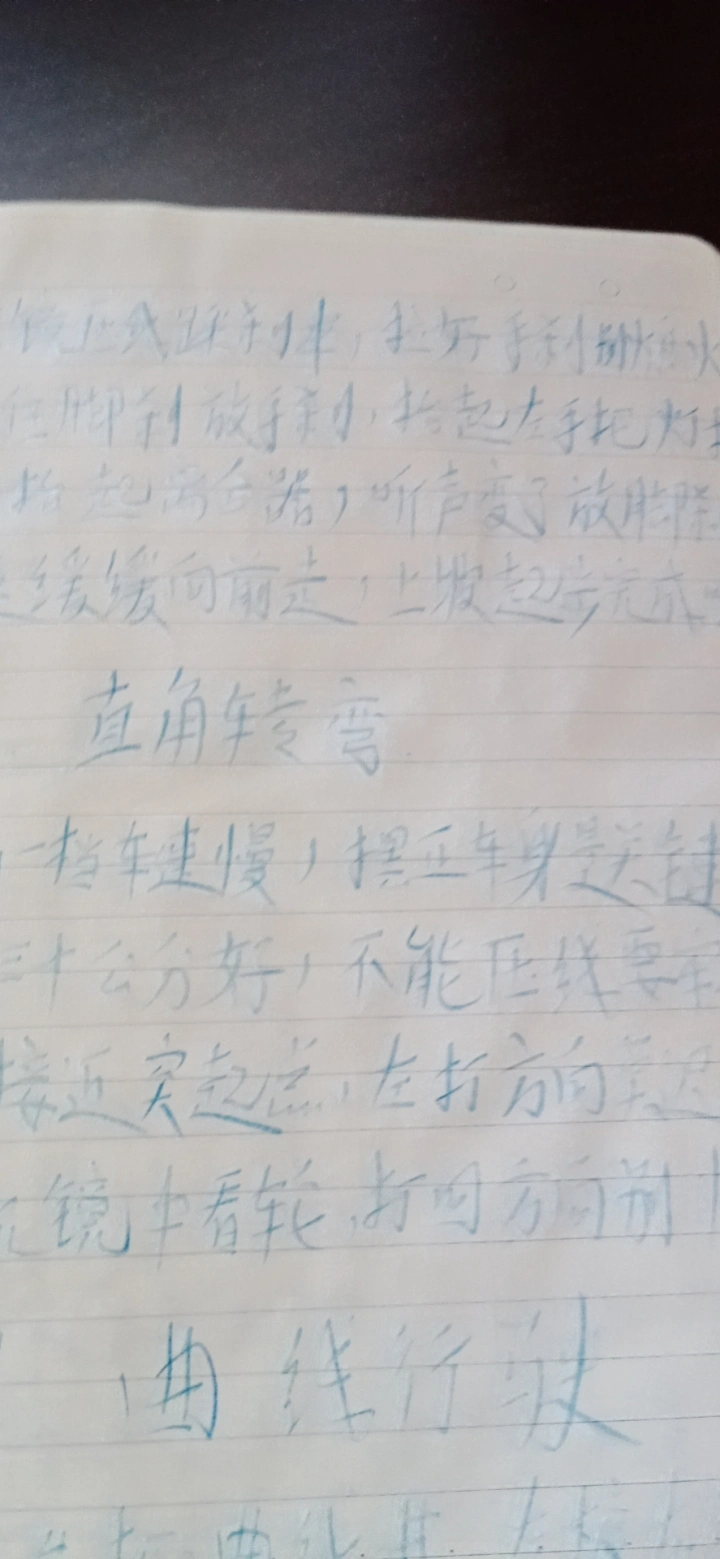 镜压线踩刹车，拉好手刹别熄火
住脚刹放手刹，抬起左手把灯
抬起离合器，听声变了放脚刹
缓缓向前走，上坡起步完成
直角转弯
一挡车速慢，摆正车身是关键
三十公分好，不能压线要牢
接近突起点，左打方向
镜中看轮，打回方向别
曲线行驶
曲线